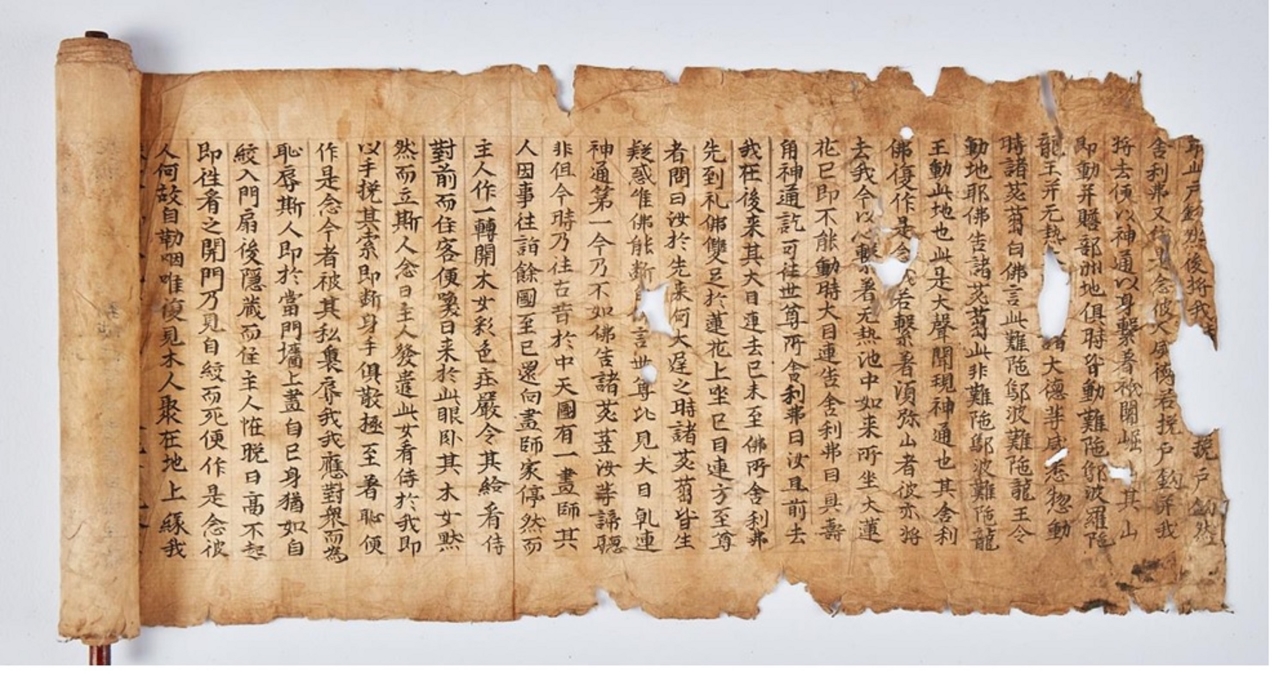 戶 然後將我 撓戶鈎然
舍利弗又 念彼大威德若撓戶鈎并我
將去便以神通以身繫著祇闍崛 其山
即動并贍部洲地俱時皆動難陁鄔波羅陁
龍王并无熱 諸大德等咸悉惣動
時諸苾蒭白佛言此難陁鄔波難陁龍王令
動地耶佛告諸苾蒭此非難陁鄔波難陁龍
王動此地也此是大聲聞現神通也其舍利
佛復作是念 若繫著湏弥山者彼亦將
去我今以心繫著无熱池中如来所坐大蓮
花已即不能動時大目連告舍利弗曰具壽
角神通訖可往世尊所舍利弗曰汝且前去
我在後来其大目連去已未至佛所舍利弗
先到礼佛雙足於蓮花上坐已目連方至尊
者問曰汝於先来何大遅之時諸苾蒭皆生
疑惑唯佛能斷 言世尊比見大目乹連
神通第一今乃不如佛告諸苾蒭汝等諦聽
非但今時乃往古昔於中天國有一畫師其
人因事往詣餘國至已還向畫師家停然而
主人作一轉關木女彩色莊嚴令其給看侍
對前而住客便喚曰来於此眠卧其木女默
然而立斯人念曰主人發遣此女看侍於我即
以手挽其索即斷身手俱散極至著恥便
作是念今者被其私裏辱我我應對衆而為
恥辱斯人即於當門牆上畫自己身猶如自
絞入門扇後隱藏而住主人恠晚日高不起
即往看之開門乃見自絞而死便作是念彼
人何故自勒咽唯復見木人聚在地上緣我